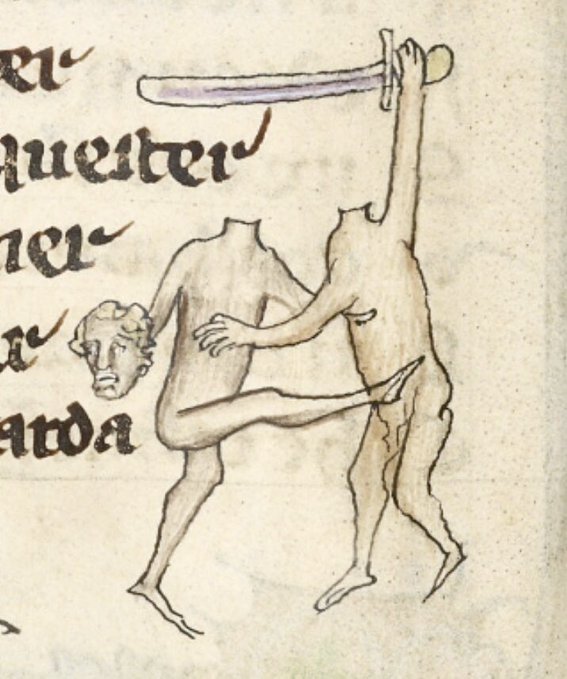 er
quester
ner
ur
arda